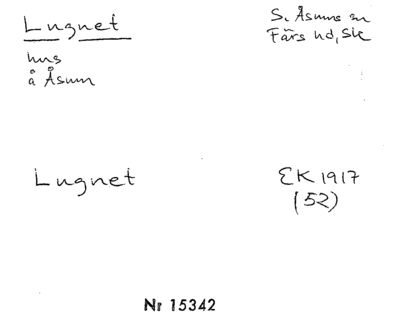 Lugnet
S. Åsums sn
Färs hd, Sk
hus
å Åsum
Lugnet
EK 1917
(52)
Nr 15342